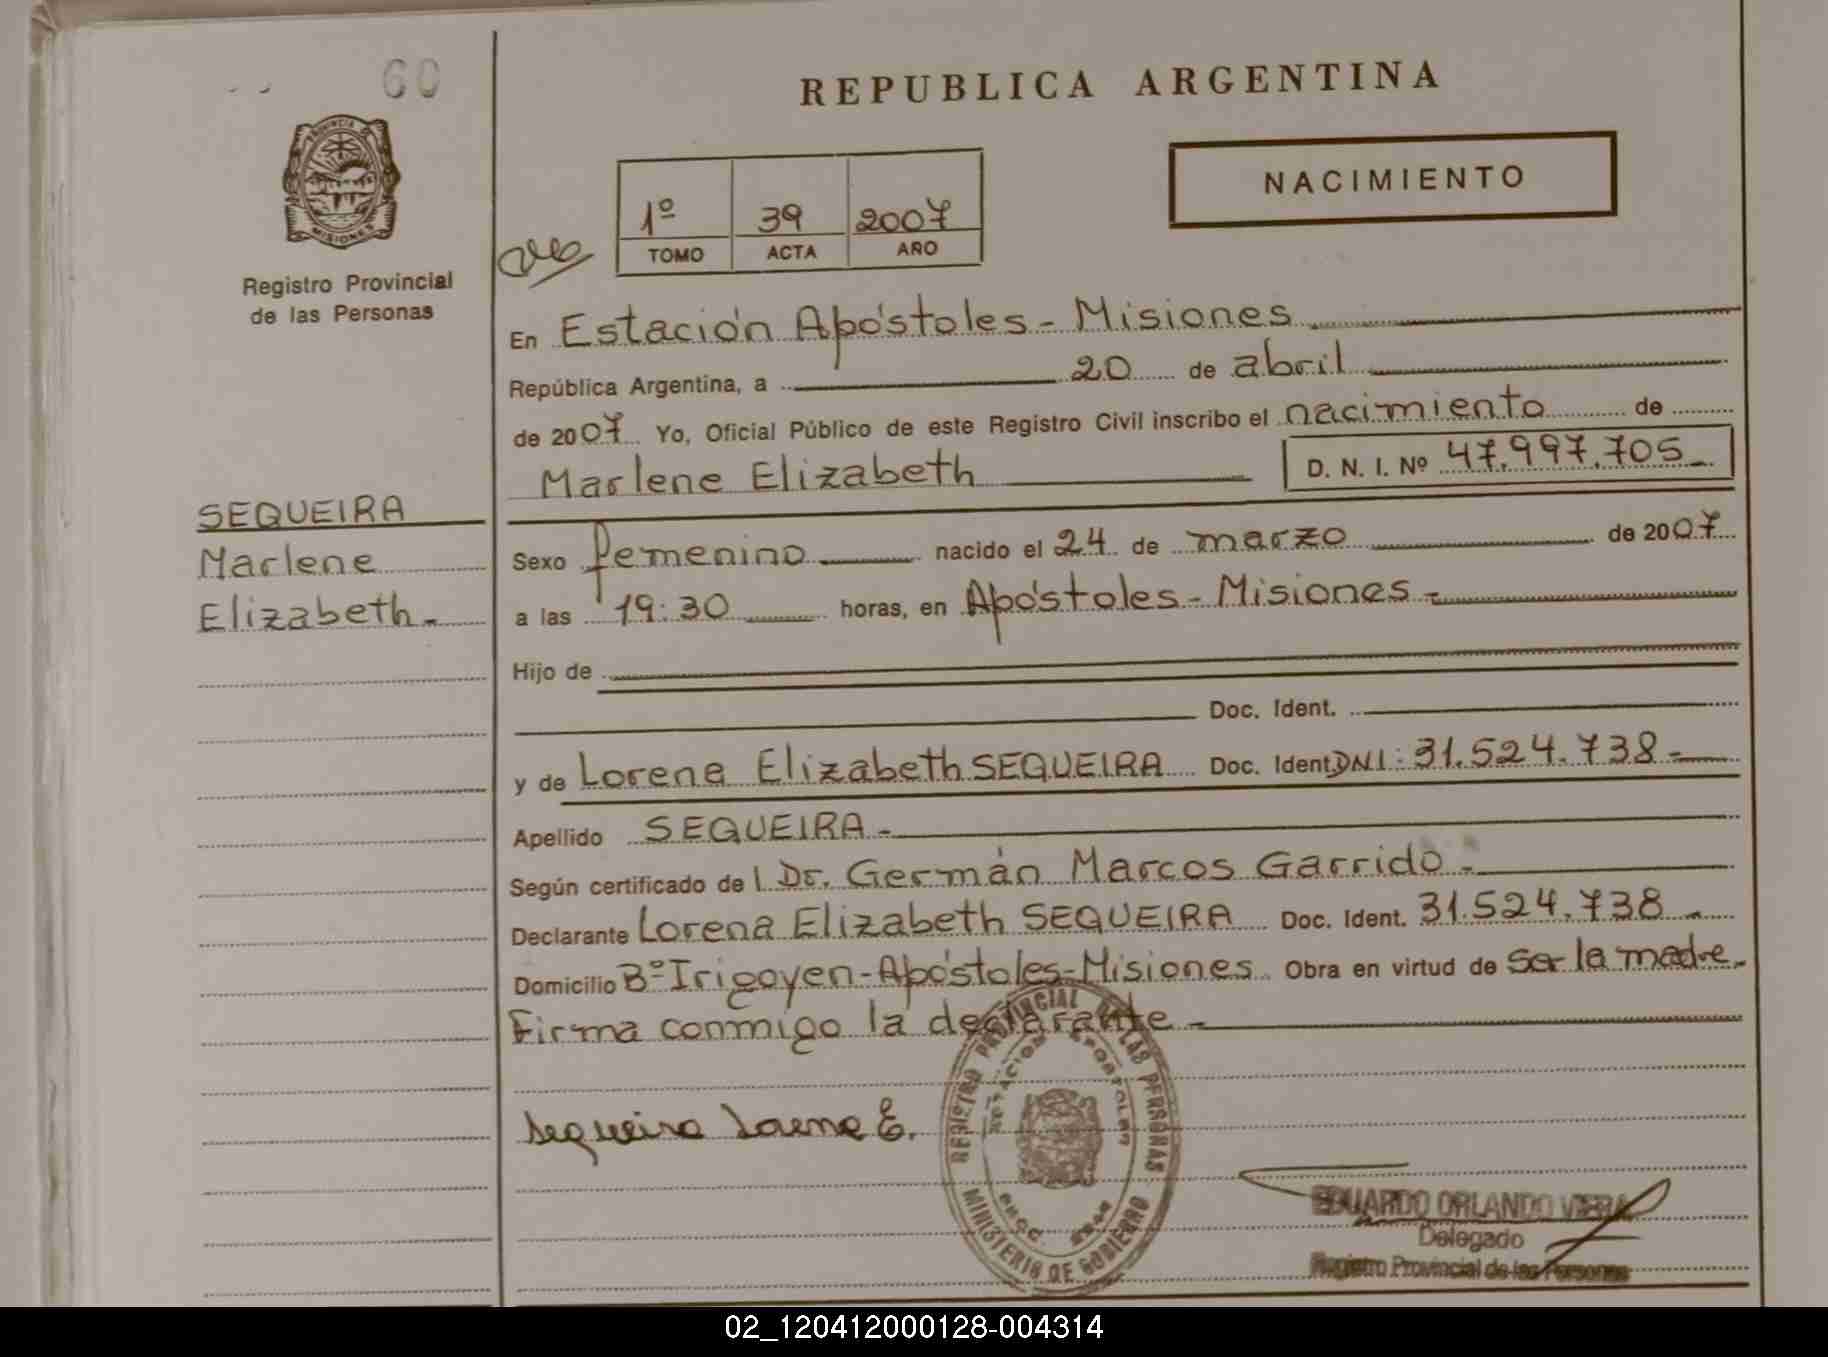 60
REPUBLICA ARGENTINA
PROVINCIA DE
MISIONES
NACIMIENTO
1º 39 2007
TOMO ACTA AÑO
Registro Provincial
de las Personas
En Estación Apóstoles - Misiones
República Argentina, a 20 de abril
de 2007 Yo, Oficial Público de este Registro Civil inscribo el nacimiento de
Marlene Elizabeth D. N. I. Nº 47.997.705
SEQUEIRA
Marlene
Elizabeth.-
Sexo femenino nacido el 24 de marzo de 2007
a las 19:30 horas, en Apóstoles - Misiones -
Hijo de
Doc. Ident.
y de Lorena Elizabeth SEQUEIRA Doc. Ident. DNI: 31.524.738 -
Apellido SEQUEIRA -
Según certificado de l Dr. Germán Marcos Garrido -
Declarante Lorena Elizabeth SEQUEIRA Doc. Ident. 31.524.738 -
Domicilio Bº Irigoyen - Apóstoles - Misiones Obra en virtud de ser la madre.
Firma conmigo la declarante -
Sequeira Lorena E.
REGISTRO PROVINCIAL DE LAS PERSONAS
MINISTERIO DE GOBIERNO
EDUARDO ORLANDO VIERA
Delegado
Registro Provincial de las Personas
02_120412000128-004314